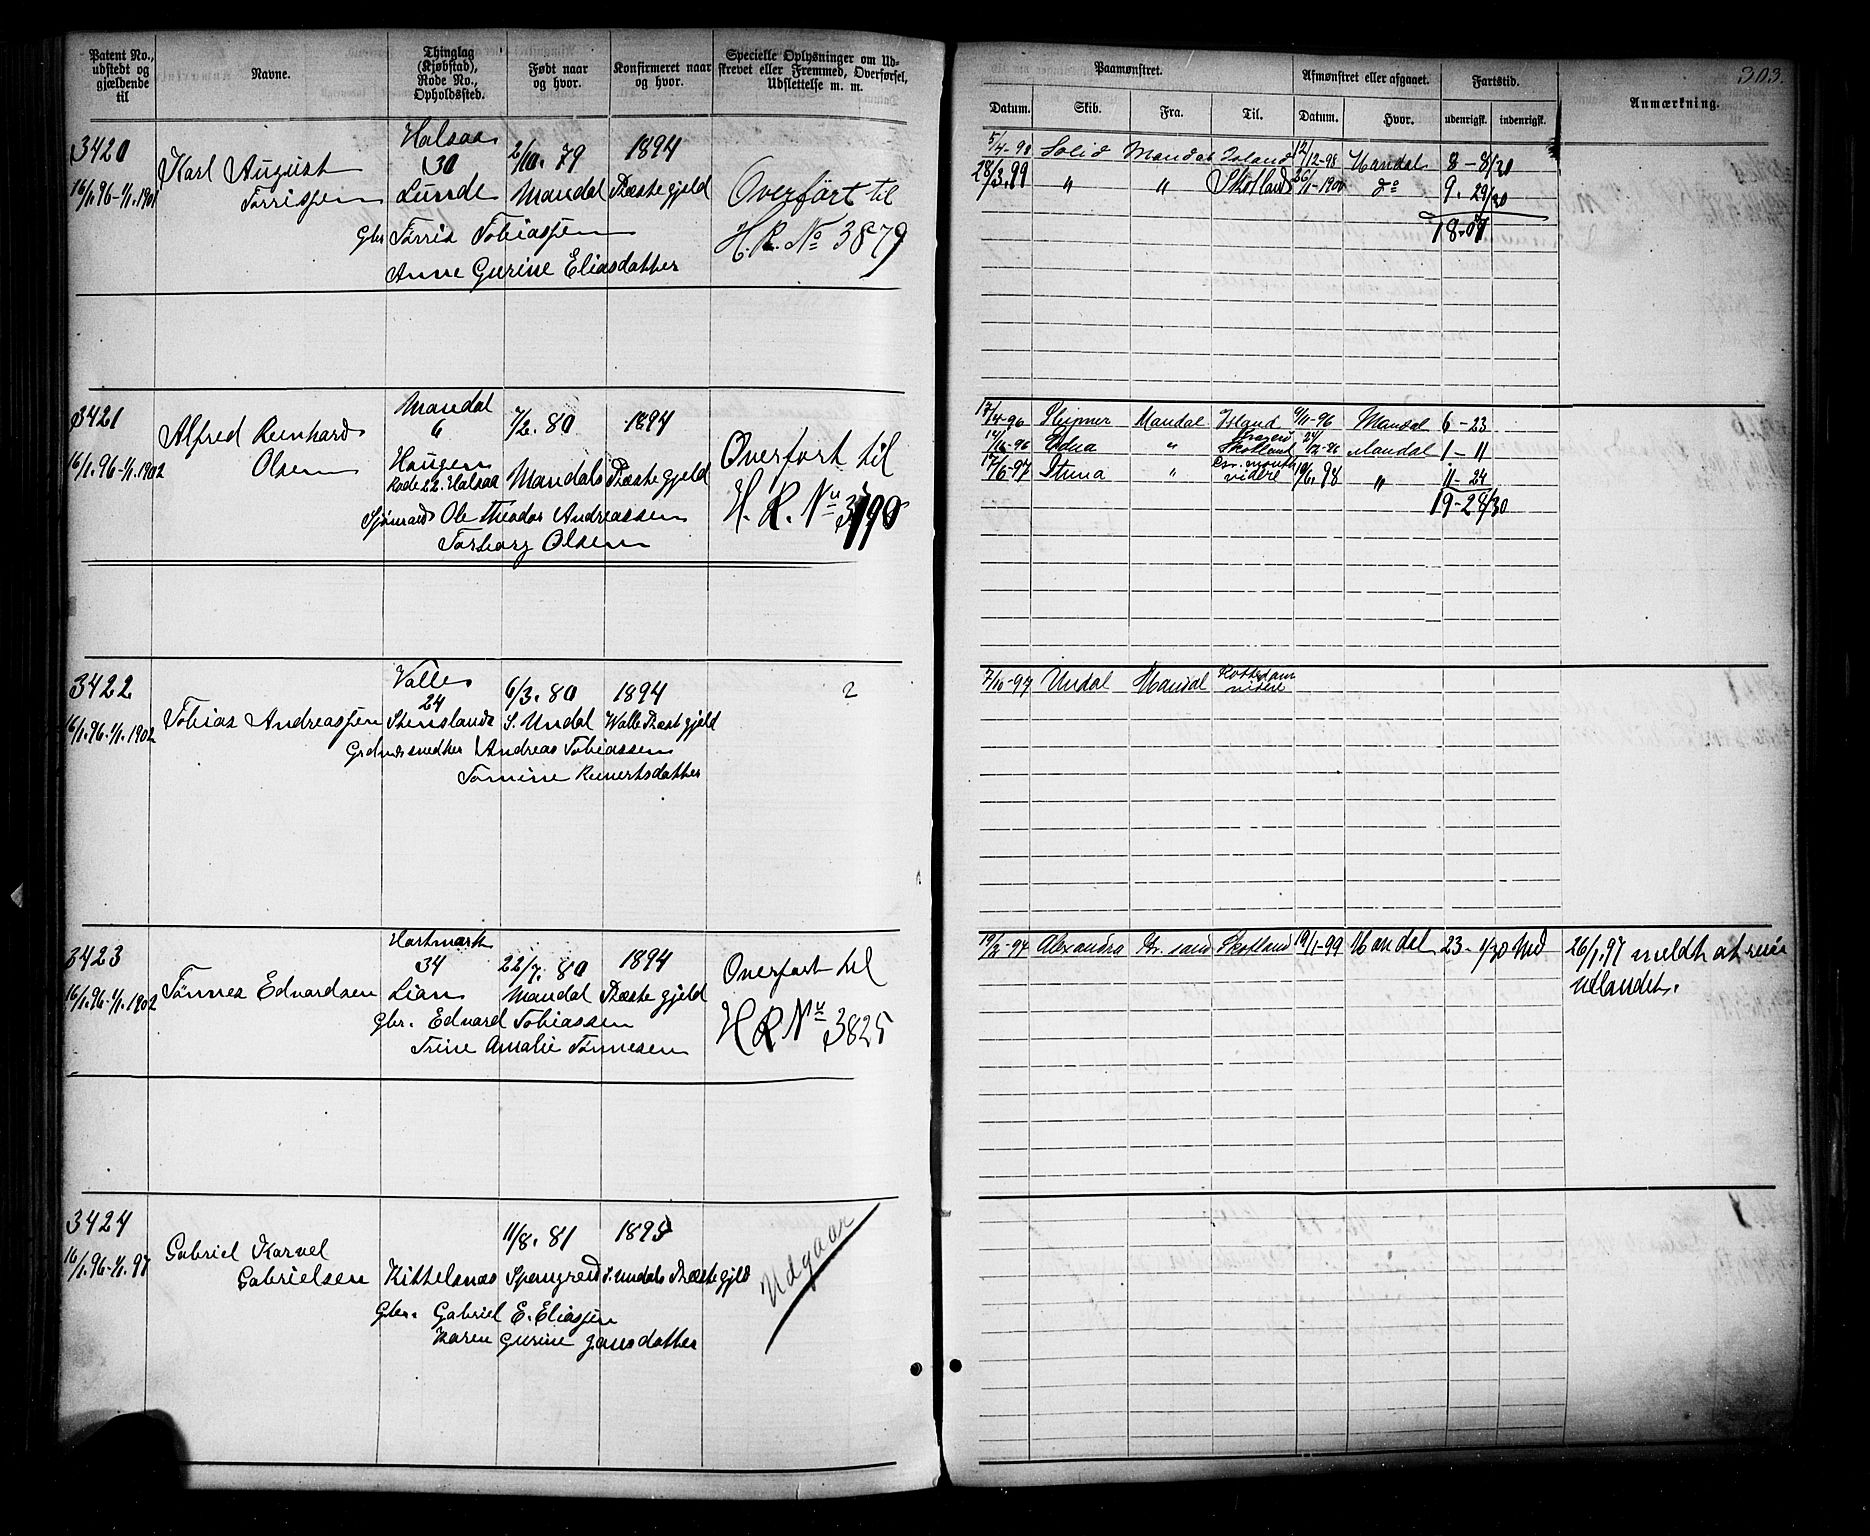 303.
Patent No., udstedt og gjældende til
Navne.
Thinglag (Kjøbstad), Rode No., Opholdssted.
Født naar og hvor.
Konfirmeret naar og hvor.
Specielle Oplysninger om Udskrevet eller Fremmed, Overførsel, Udslettelse m. m.
Paamønstret.
Afmønstret eller afgaaet.
Fartstid.
Anmærkning.
Datum. Skib. Fra. Til. Datum. Hvor. udenrigsk. indenrigsk.
3420
16/1.96-1/1.1901
Karl August
Torrissen
Halsaa
30
Lunde
2/10. 79
Mandal
1894
Præstegjeld
Overført til
H.R. No 3879
Gbr Tørris Tobiassen
Anne Gurine Eliasdatter
5/4-98 Solid Mandal Island 12/12-98 Mandal 8-8/30
28/3.99 " " Skotland 26/1-1900 do 9. 29/30
18-07
3421
16/1.96-1/1.1902
Alfred Reinhard
Olsen
Mandal
6
Haugen
Rode 22. Halsaa
7/2. 80
Mandals
1894
Præstegjeld
Overført til
H. R. No
Sjømand Ole Theodor Andreassen
Torborg Olsen
17/4-96 Sleipner Mandal Island 9/11-96 Mandal 6-23
14/11-96 Edna " Skotland 24/12-96 Mandal 1-11
17/6-97 " videre 10/6.98 " 11-24
19-28/30
3422
16/1.96-1/1.1902
Tobias Andreassen
Valle
24
Stenslands
6/3. 80
S. Undal
1894
Walle Præstgjeld
2
Andreas Tobiassen
Tomine Reinertsdatter
7/10-97 Undal Mandal Rotterdam videre
3423
16/1.96-1/1.1902
Tønnes Edvardsen
Hartmark
34
Lian
22/7. 80
Mandal
1894
Præstegjeld
Overført til
H R No 3825
Gbr. Edvard Tobiassen
Trine Amalie Tønnesen
19/2-97 Alexandra Kr. sand Skotland 19/1-99 Mandal 23- 1/30 Md
26/1.97 meldt at reise
udlandet.
3424
16/1.96-1/1.97
Gabriel Karvel
Gabrielsen
Kittelsnæs
11/8. 81
Spangreid
1895
S. Undals Præstegjeld
Udgaar
Gbr. Gabriel E. Eliassen
Karen Gurine Jansdatter